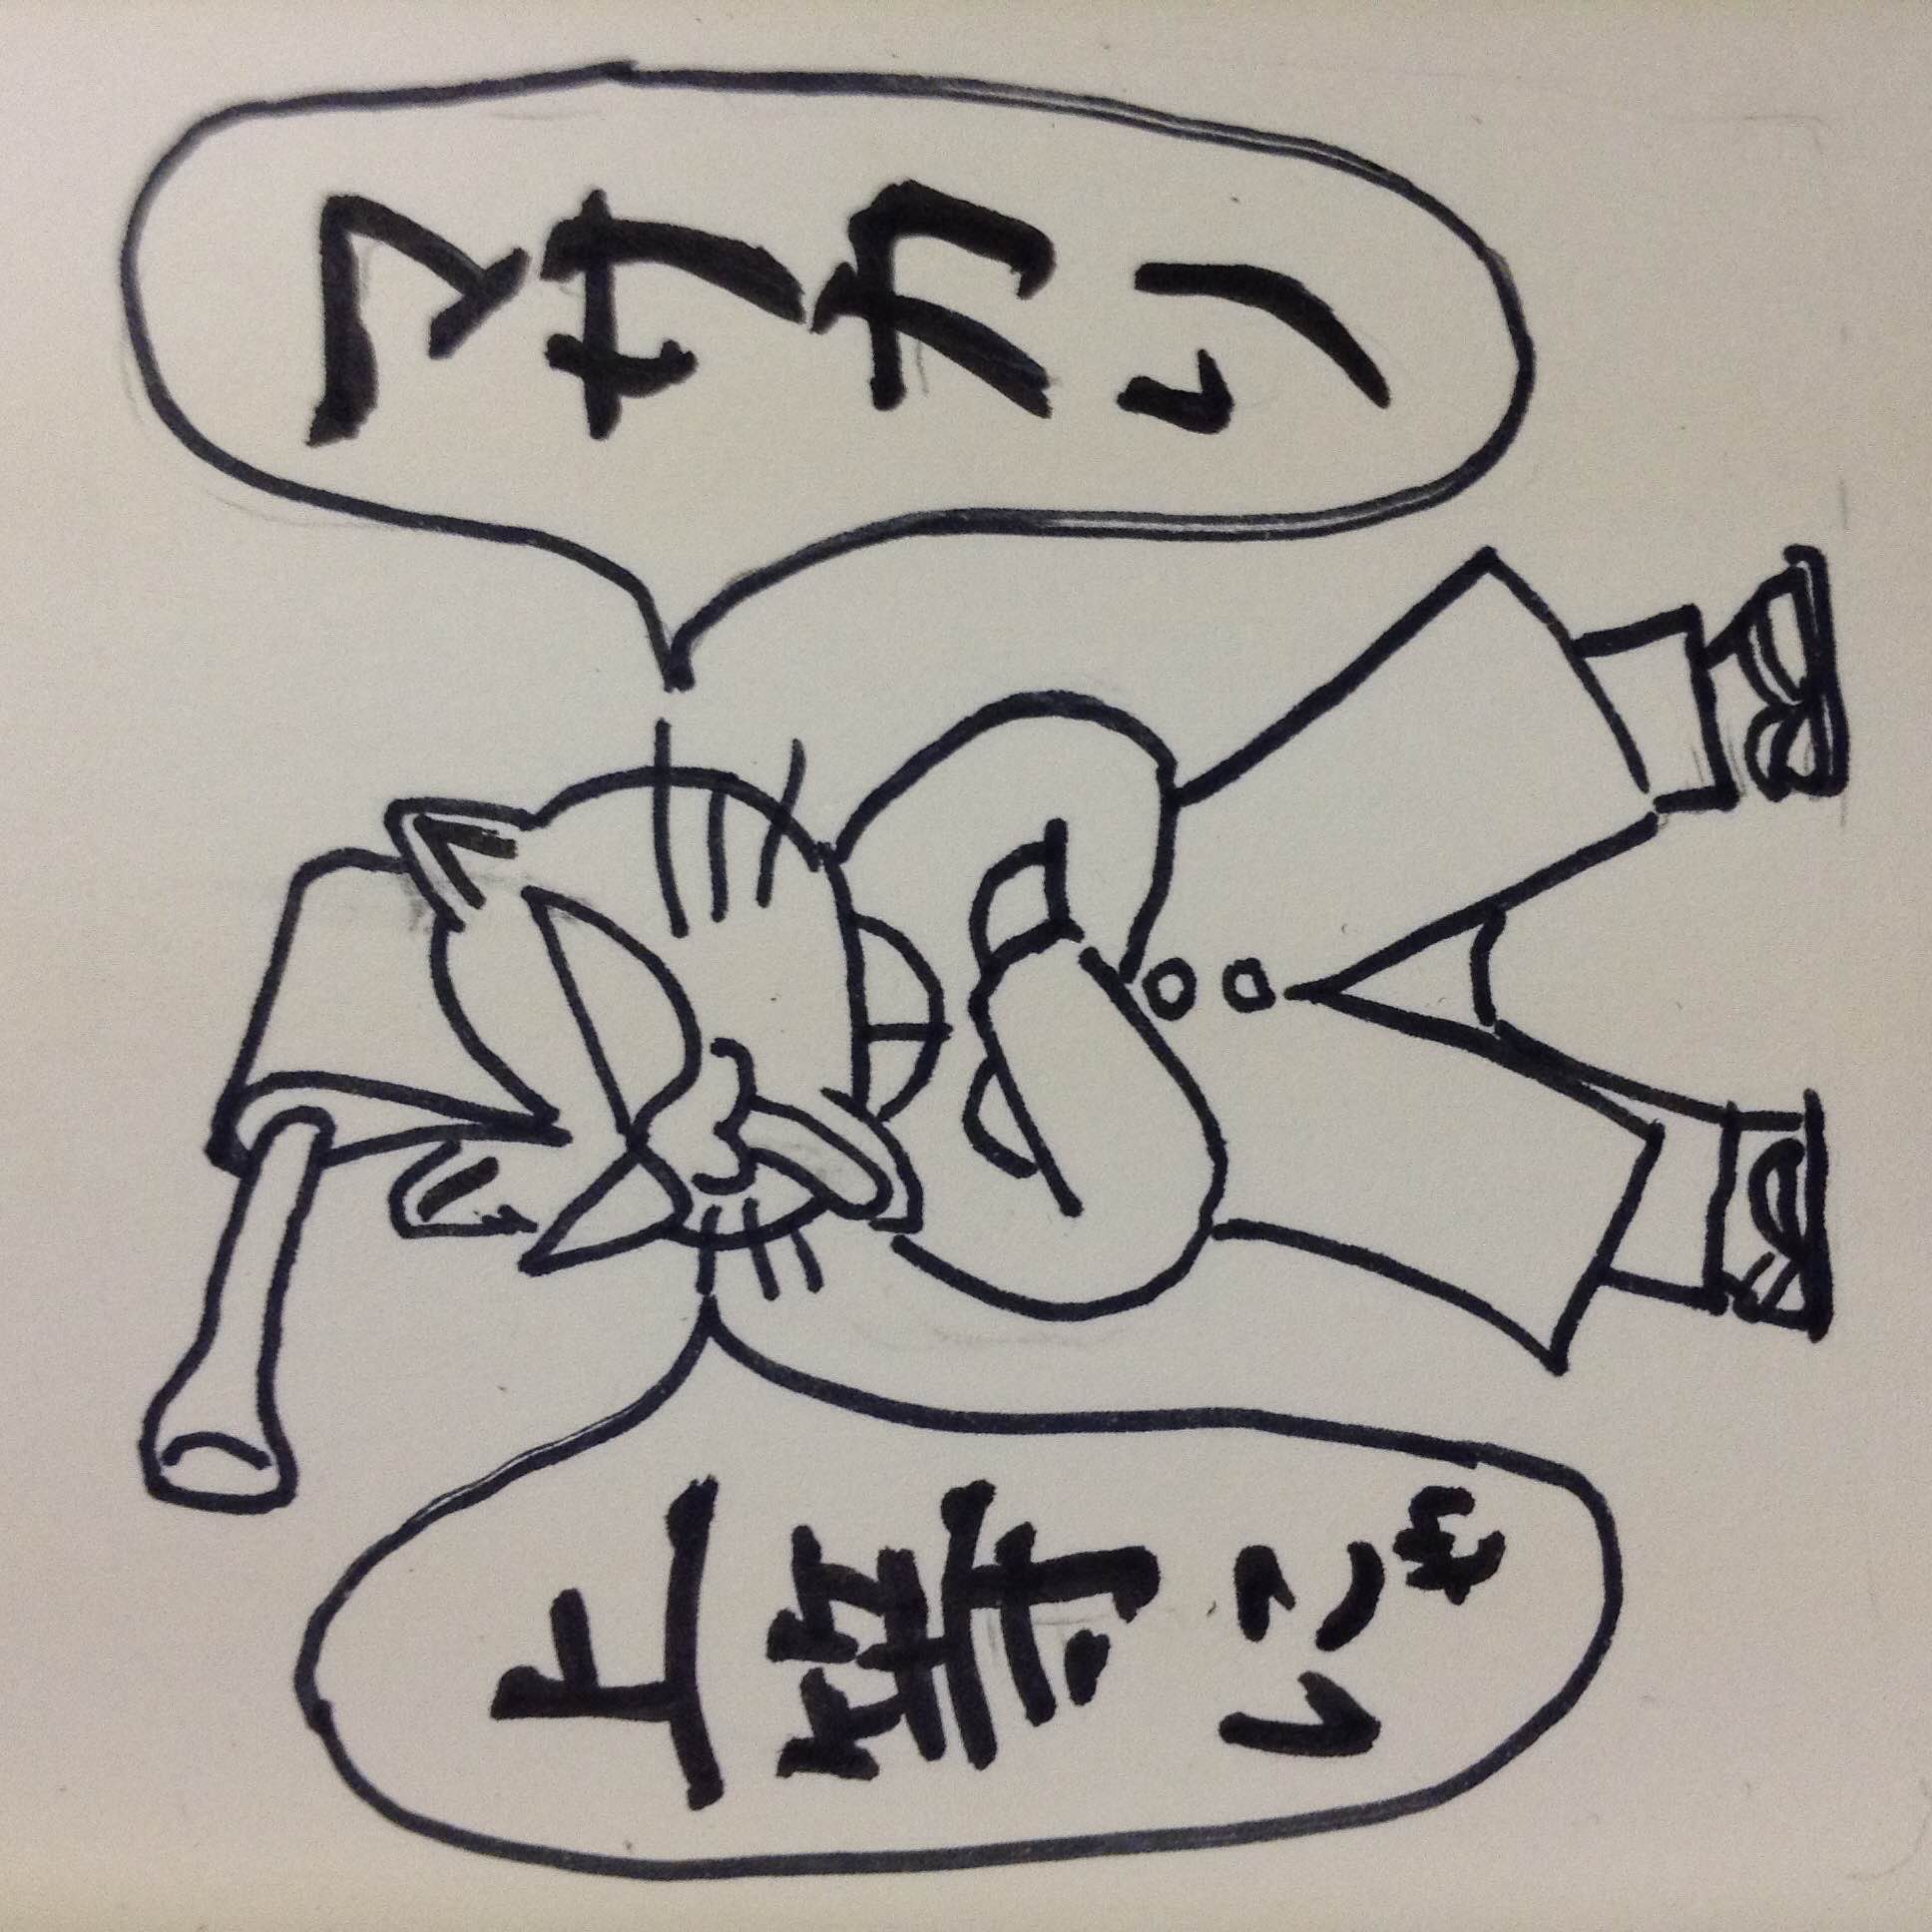 マサカリ
上等にゃ